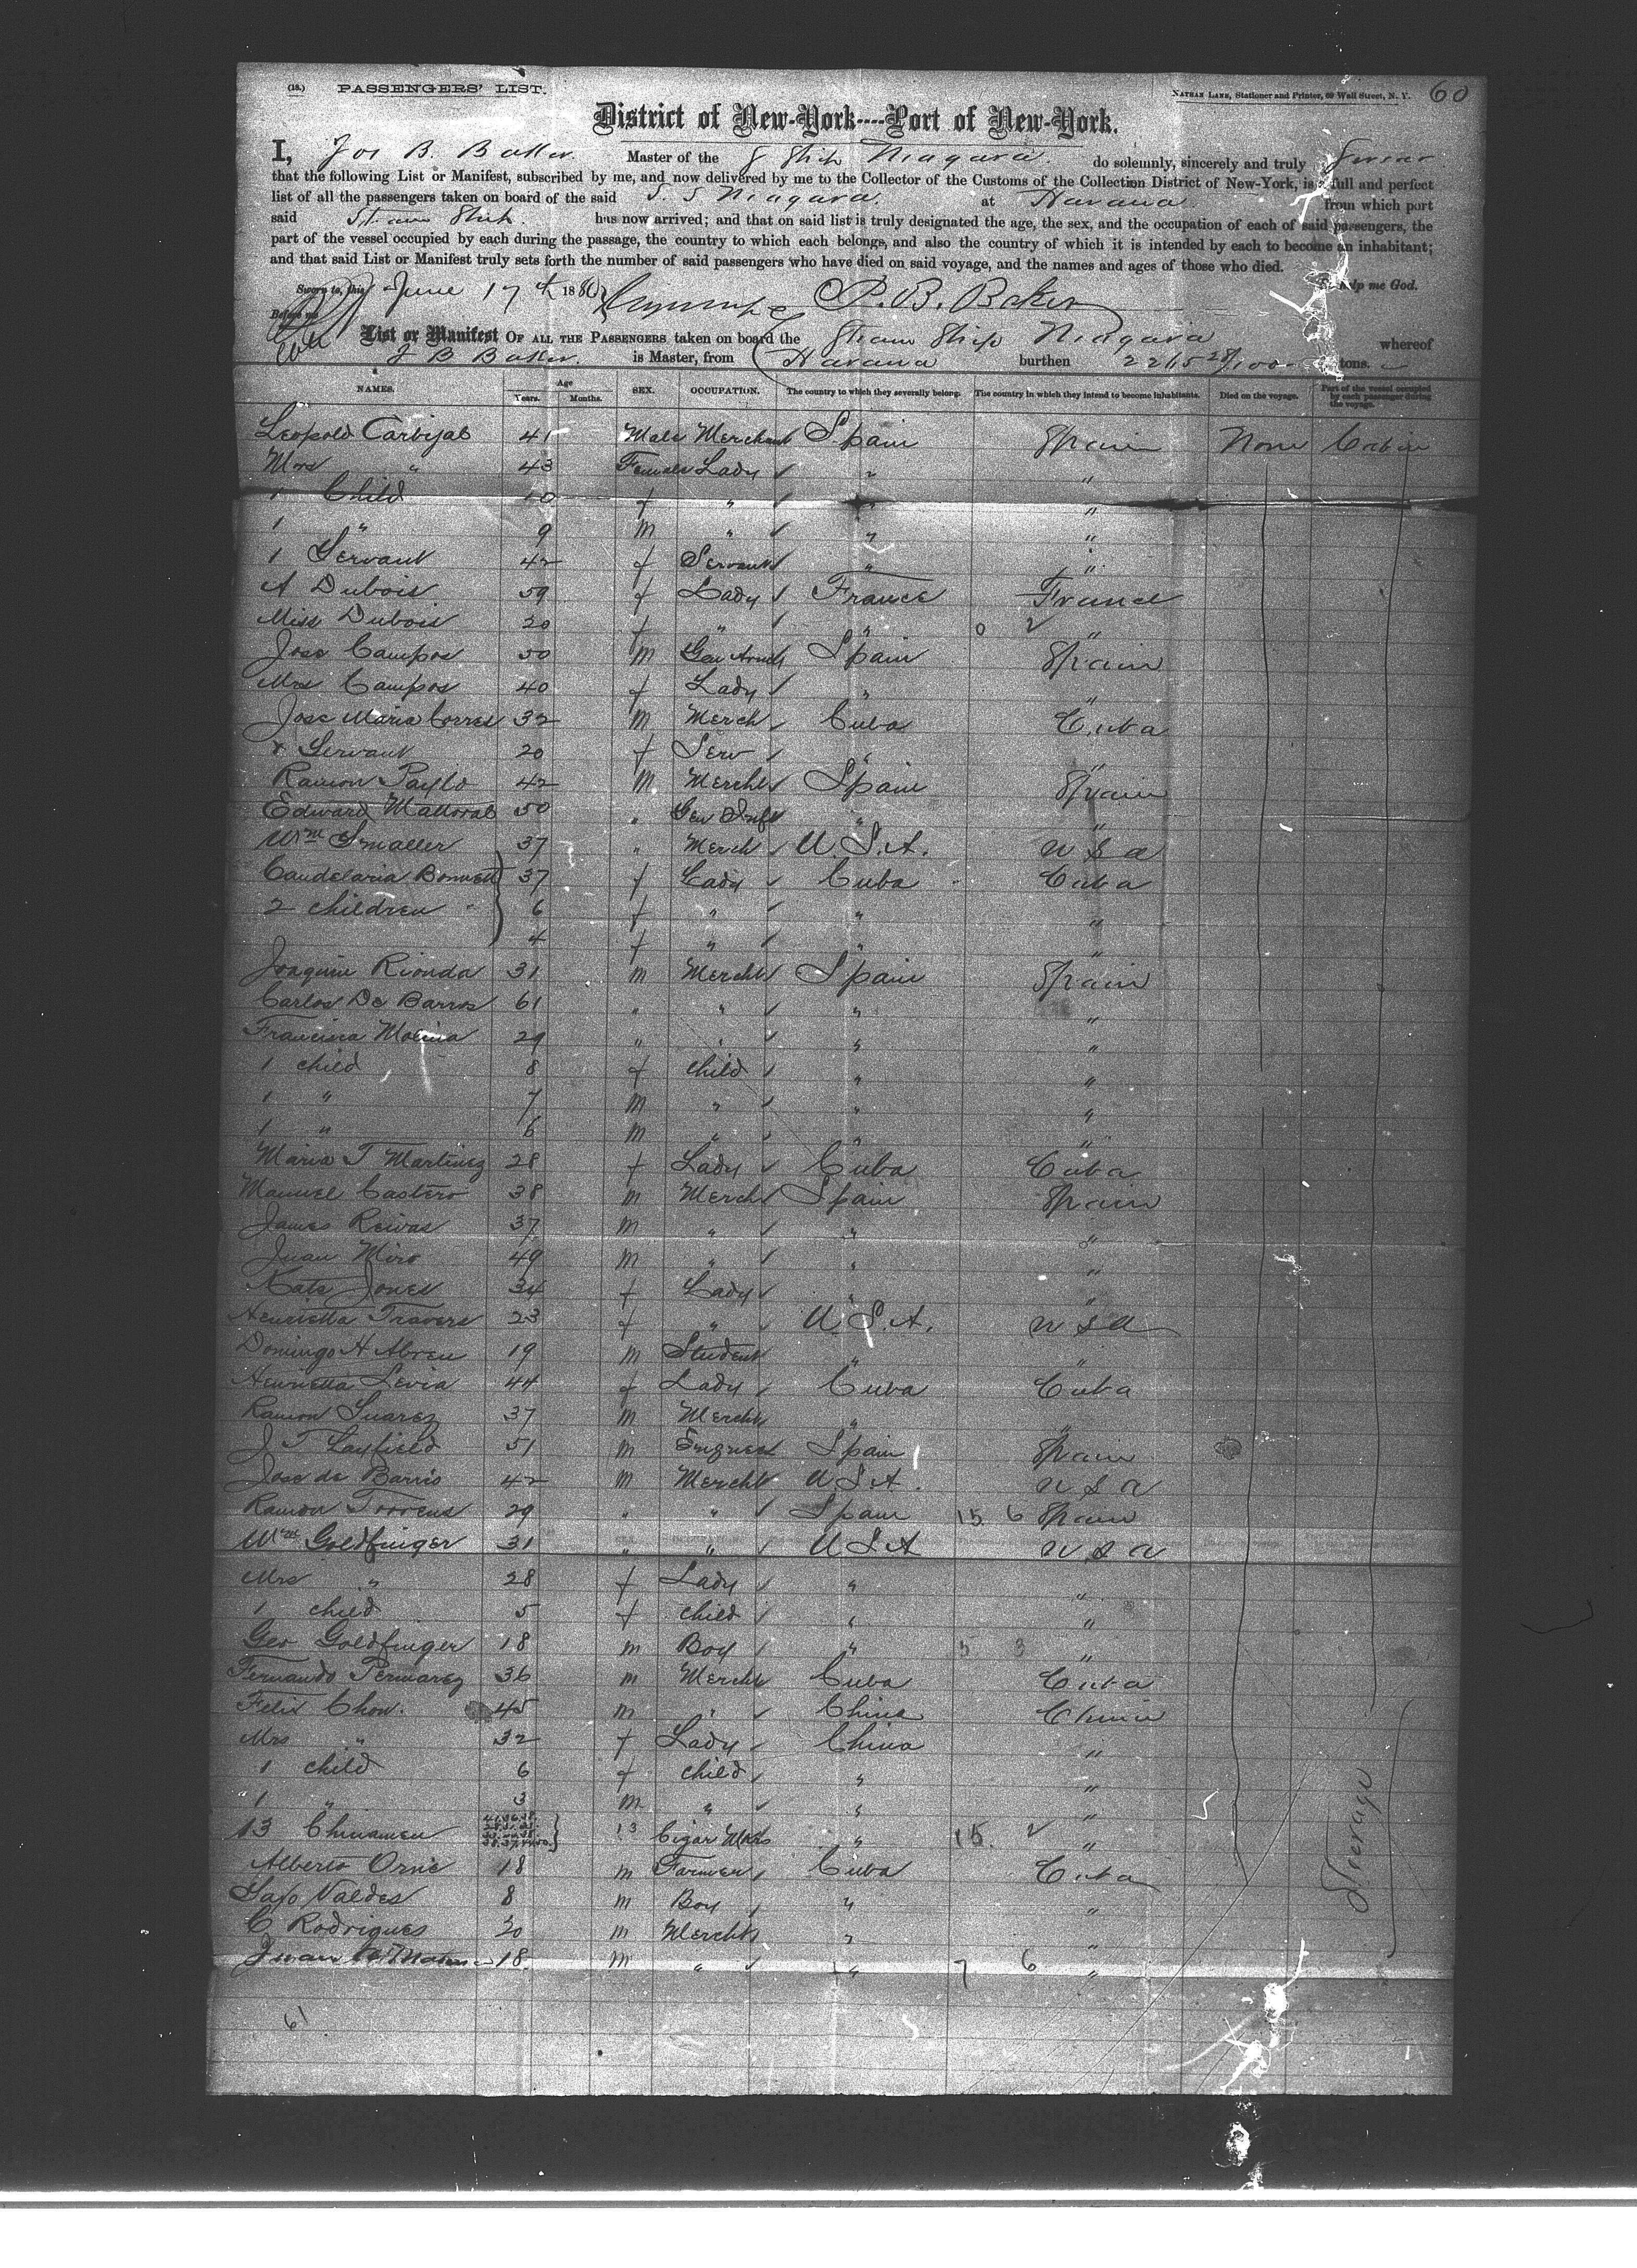 (18.) PASSENGERS' LIST. NATHAN LANE, Stationer and Printer, 69 Wall Street, N. Y. 60
District of New-York----Port of New-York.
I, Jos B. Baker Master of the S Ship Niagara do solemnly, sincerely and truly Swear
that the following List or Manifest, subscribed by me, and now delivered by me to the Collector of the Customs of the Collection District of New-York, is a full and perfect
list of all the passengers taken on board of the said S. S Niagara. at Havana from which port
said Steam Ship. has now arrived; and that on said list is truly designated the age, the sex, and the occupation of each of said passengers, the
part of the vessel occupied by each during the passage, the country to which each belongs, and also the country of which it is intended by each to become an inhabitant;
and that said List or Manifest truly sets forth the number of said passengers who have died on said voyage, and the names and ages of those who died.
Sworn to, this June 17th 1880 B. Baker So help me God.
Before me
List or Manifest OF ALL THE PASSENGERS taken on board the Steam Ship Niagara whereof
J B Baker. is Master, from Havana burthen 2265 28/100 tons.
NAMES. Age Years. Months. SEX. OCCUPATION. The country to which they severally belong. The country in which they intend to become inhabitants. Died on the voyage. Part of the vessel occupied by each passenger during the voyage.
Leopold Carbijal 41 Male Merchant Spain Spain None Cabin
Mrs " 43 Female Lady " "
1 Child 10 f " " "
1 " 9 m " " "
1 Servant 42 f Servant " "
A Dubois 59 f Lady France France
Miss Dubois 20 f " " 0 2 "
Jose Campos 50 m Spain Spain
Mrs Campos 40 f Lady " "
Jose Maria Torres 32 m Merch Cuba Cuba
& Servant 20 f Serv " "
Ramon 42 M Mercht Spain Spain
Edward 50 " " "
Wm Smaller 37 " Merch U.S.A. U S A
Candelaria Bonnett 37 f Lady Cuba Cuba
2 children " 6 f " " "
4 f " " "
Joaquin Rionda 31 m Mercht Spain Spain
Carlos De Barros 61 " " " "
Francisca Molina 29 " " " "
1 child 8 f child " "
1 " 7 m " " "
1 " 6 m " " "
Maria T Martinez 28 f Lady Cuba Cuba
Manuel Castero 38 m Mercht Spain Spain
James Reivas 37 m " " "
Juan Miro 49 m " " "
Kate Jones 34 f Lady " "
Henrietta Travers 23 f " U.S.A. U S A
Domingo H Abreu 19 m Student " "
Henrietta Levia 44 f Lady Cuba Cuba
Ramon Suarez 37 m Mercht " "
J T Layfield 51 m Spain Spain
Jose de Barrio 42 m Mercht U S A. U S A
Ramon Torrens 29 " " Spain 15 6 Spain
Wm Goldfinger 31 " " U S A U S A
Mrs " 28 f Lady " "
1 child 5 f child " "
Geo Goldfinger 18 m Boy " 5 3 "
Fernando 36 m Mercht Cuba Cuba
Felix Chow. 45 m " China China
Mrs " 32 f Lady China "
1 child 6 f child " "
1 " 3 m " " "
13 Chinamen 13 Cigar Mkrs " 15 2 " Steerage
Alberto Orne 18 m Farmer Cuba Cuba
Valdes 8 m Boy " "
C Rodrigues 20 m Mercht " "
Juan 18 m " " 7 6 "
61